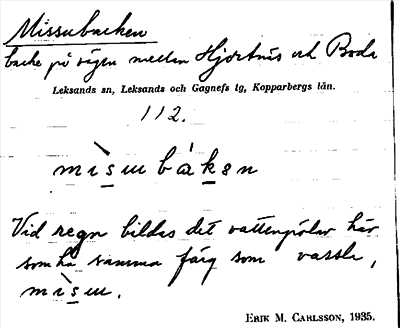 Missubacken
backe på vägen mellan Hjortnäs och Boda
Leksands sn, Leksands och Gagnefs tg, Kopparbergs län.
112.
mìsu båkǝn
Vid regn bildas det vattenpölar här
som ha samma färg som vassla,
mìsu.
ERIK M. CARLSSON, 1935.